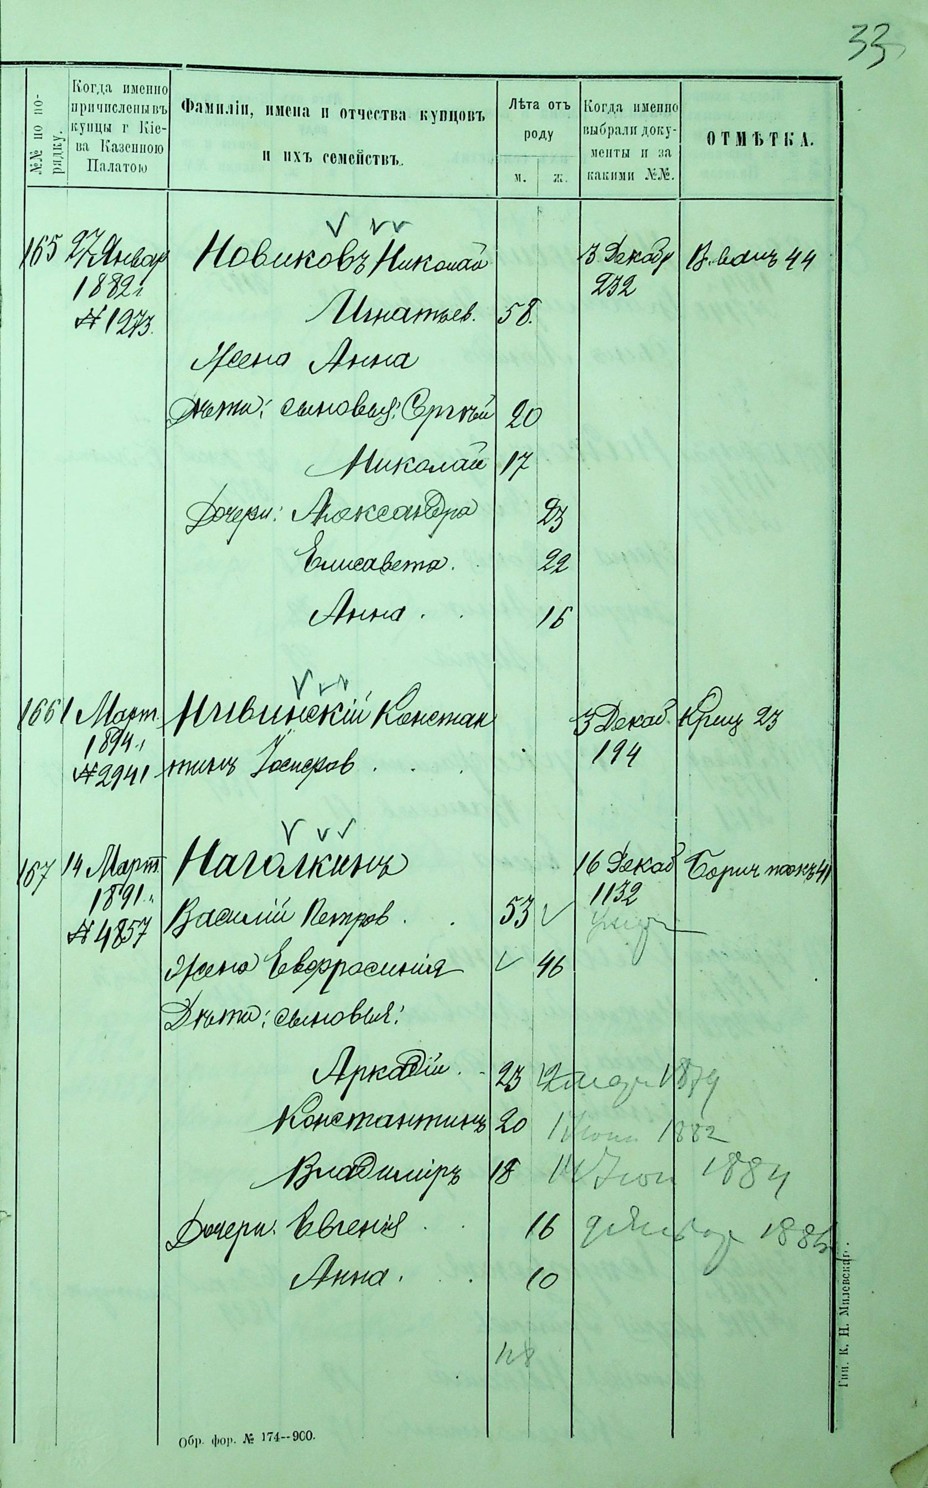 33
№№ по по-
рядку.
Когда именно
причислены въ
купцы г Кіе-
ва Казенною
Палатою
Фамиліи, имена и отчества купцовъ
и ихъ семействъ.
Лѣта отъ
роду
м. ж.
Когда именно
выбрали доку-
менты и за
какими №№.
ОТМѢТКА.
165 27 Январ Новиковъ Николай 3 Декабр 44
1882 г 232
№ 1273. Игнатьев. 58.
Жена Анна
Дѣти: сыновья: Сергѣй 20
Николай 17
Дочери: Александра 23
Елисавета. 22
Анна. 16
166 1 Март Нивинскій Констан 3 Декаб. Крещ 23
1894 г 194
№ 2941 тинъ Іосифов
167 14 Март Наголкинъ 16 Декаб Борич токъ 41
1891 г. 1132
№ 4857 Василій Петров. 53
Жена Евфросинія 46
Дѣти: сыновья:
Аркадій. 23 1879
Константинъ 20 1 Іюня 1882
Владиміръ 18 14 Іюн 1884
Дочери: Евгенія 16
Анна. 10
Обр. фор. № 174--900.
Тип. К. Н. Милевскаг.